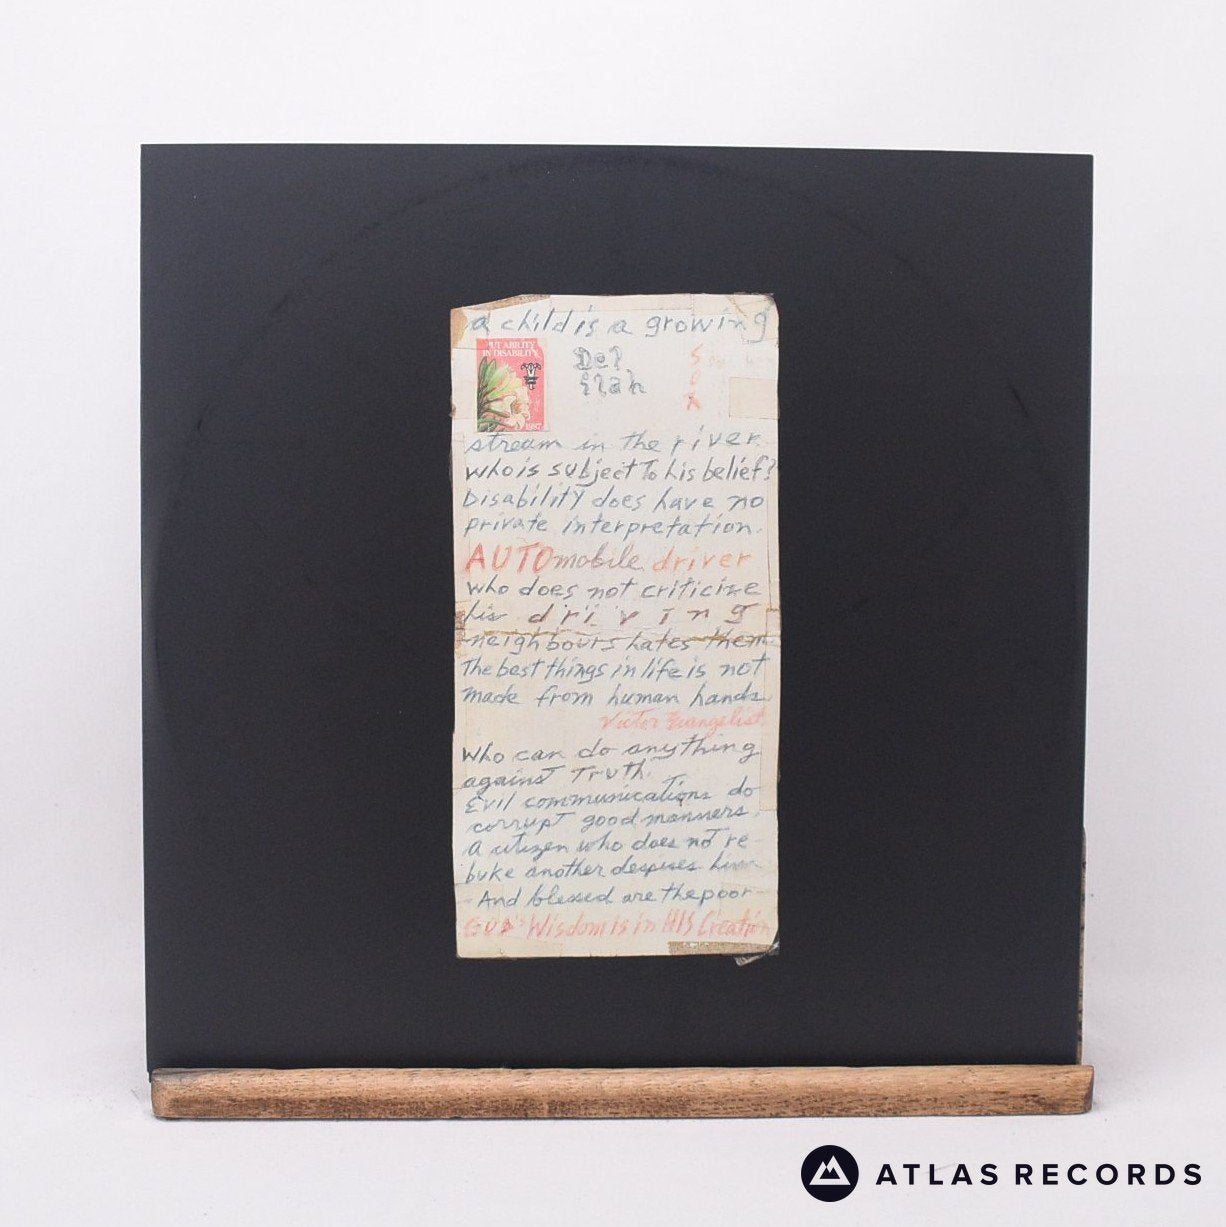 a child is a growing
PUT ABILITY
IN DISABILITY
1987
Del
ilah
S
O
R
stream in the river.
who is subject To his belief?
Disability does have no
private interpretation.
AUTOmobile driver
who does not criticize
his driving
neighbours hates them.
The best things in life is not
made from human hands
Victor Evangelist
Who can do anything
against Truth.
Evil communications do
corrupt good manners.
a citizen who does not re-
buke another despises him
- And blessed are the poor -
GOD'S Wisdom is in HIS Creation
ATLAS RECORDS